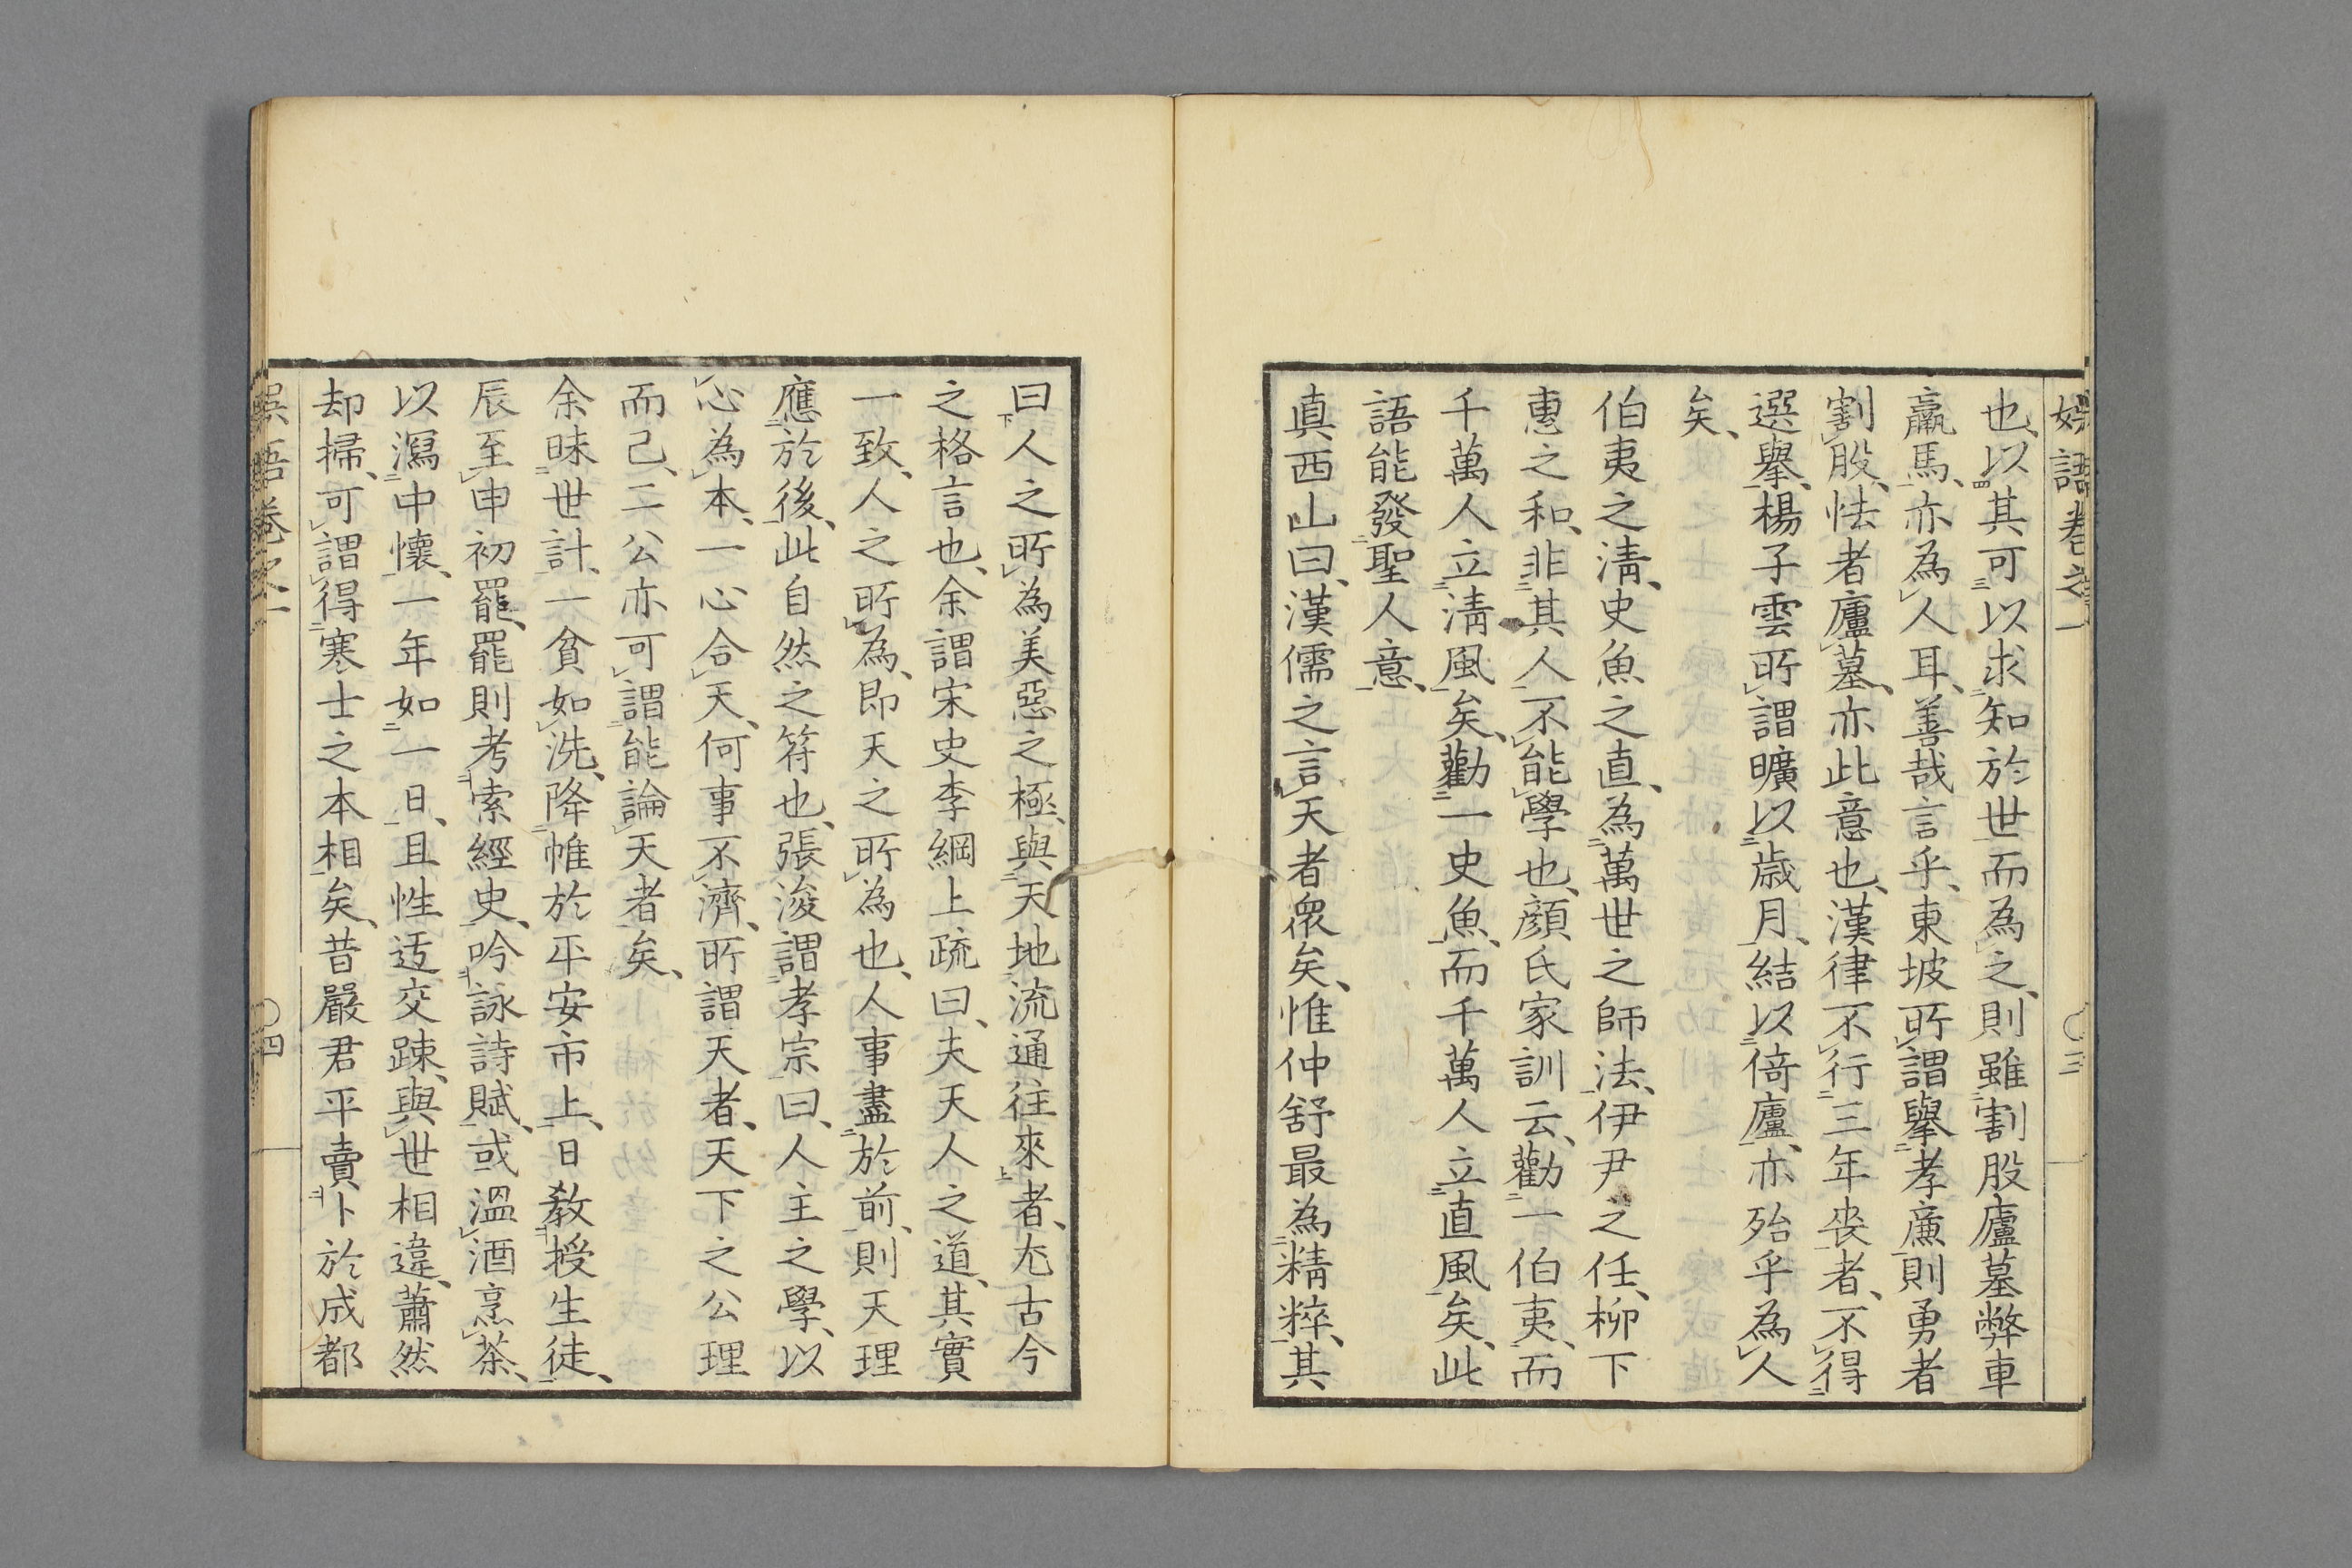 娯語卷之一 〇三
也、以其可以求知於世而為之、則雖割股廬墓弊車
羸馬、亦為人耳、善哉言乎、東坡所謂擧孝廉則勇者
割股、怯者廬墓、亦此意也、漢律不行三年丧者、不得
選擧、楊子雲所謂曠以歳月、結以倚廬、亦殆乎為人
矣、
伯夷之淸、史魚之直、為萬世之師法、伊尹之任、柳下
惠之和、非其人不能學也、顔氏家訓云、勸一伯夷、而
千萬人立淸風矣、勸一史魚、而千萬人立直風矣、此
語能發聖人意、
真西山曰、漢儒之言天者衆矣、惟仲舒最為精粹、其
曰人之所為美惡之極、與天地流通往來者、尤古今
之格言也、余謂宋史李綱上疏曰、夫天人之道、其實
一致、人之所為、即天之所為也、人事盡於前、則天理
應於後、此自然之符也、張浚謂孝宗曰、人主之學、以
心為本、一心合天、何事不濟、所謂天者、天下之公理
而己、二公亦可謂能論天者矣、
余昧世計、一貧如洗、降帷於平安市上、日教授生徒、
辰至申初罷、罷則考索經史、吟詠詩賦、或溫酒烹茶、
以瀉中懷、一年如一日、且性迂交踈、與世相違、蕭然
却掃、可謂得寒士之本相矣、昔嚴君平賣卜於成都
娯語卷之一 〇四